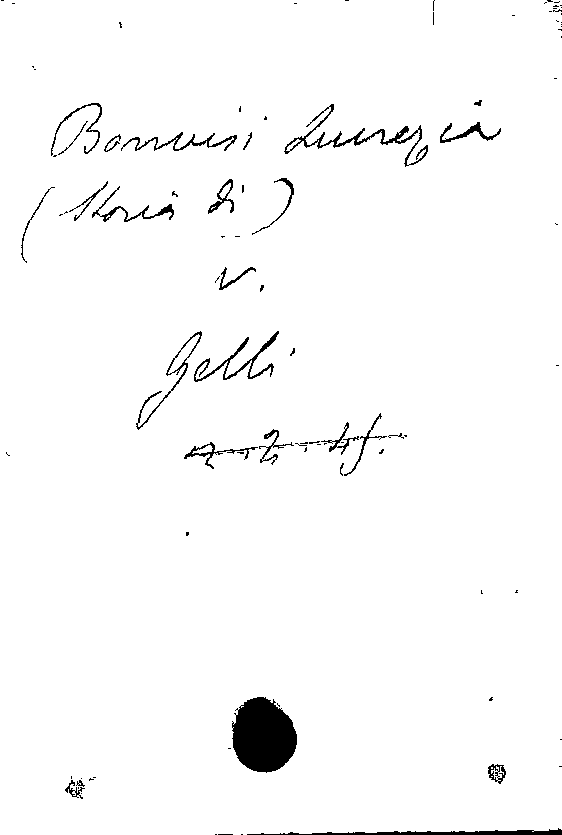 Bonvisi Lucrezia
(Storia di)
v.
Gelli